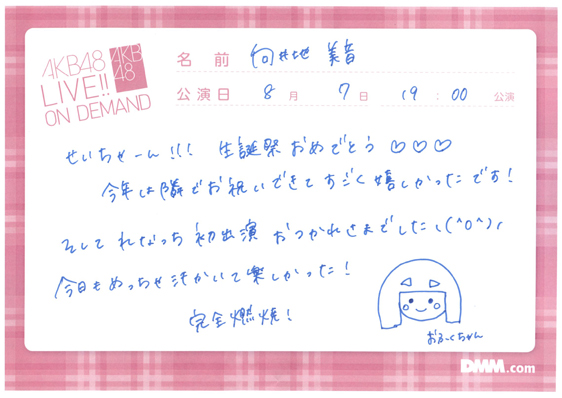 AKB48
LIVE!!
ON DEMAND
AKB
48
名前 向井地 美音
公演日 8月 7日 19:00 公演
せいちゃーん!!! 生誕祭おめでとう♡♡♡
今年は隣でお祝いできてすごく嬉しかったです!
そして れなっち 初出演 おつかれさまでした\(^o^)/
今日もめっちゃ汗かいて楽しかった!
完全燃焼!
おんくちゃん
DMM.com